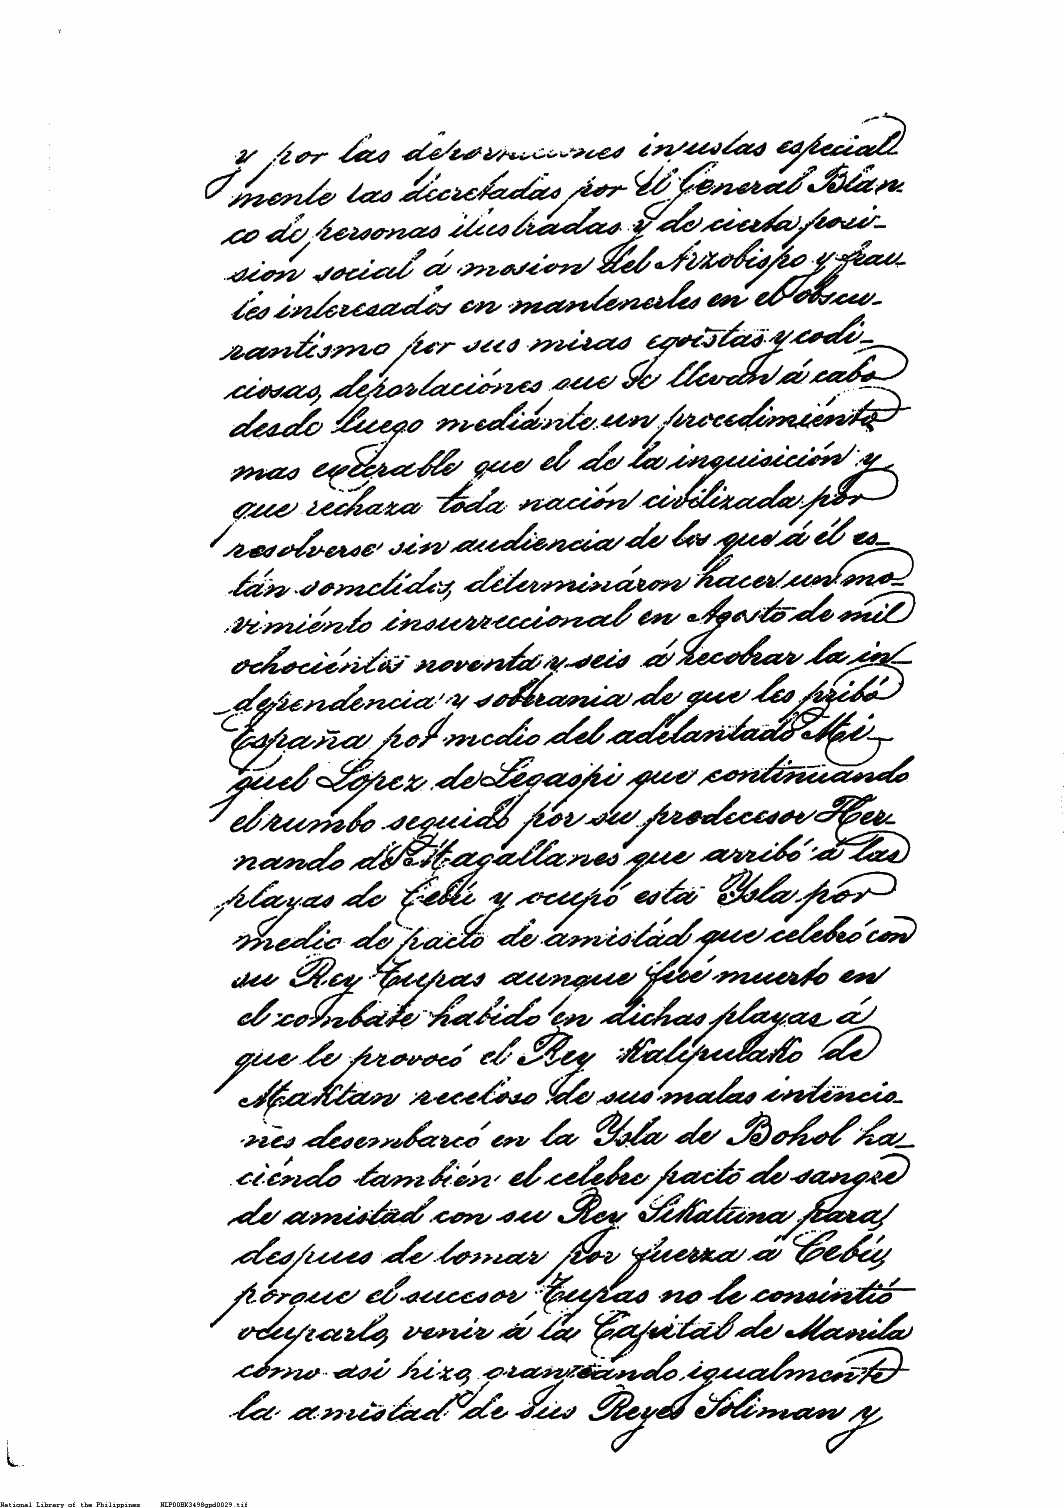 y por las deportaciones injustas especial
mente las dicretadas por el General Blan-
co de personas ilustradas y de cierta posi-
sion social á mosion del Arzobispo y frai-
les interesados en mantenerles en el obscu-
rantismo por sus miras egoistas y codi-
ciosas, deportaciónes que se llevan á cabo
desde luego mediante un procedimiénto
mas execrable que el de la inquisición y
que rechaza toda nación civilizada por
resolverse sin audiencia de los que á él es-
tán sometidos, determináron hacer un mo-
vimiénto insurreccional en Agosto de mil
ochociéntos noventa y seis á recobrar la in-
dependencia y soberania de que les pribó
España por medio del adelantado Mi-
guel Lopez de Legaspi que continuando
el rumbo seguido por su predecesor Her-
nando de Magallanes que arribó á las
playas de Cebú y ocupó esta Ysla por
medio de pacto de amistád que celebró con
su Rey Tupas aunque fué muerto en
el combate habido en dichas playas á
que le provocó el Rey Kalipulako de
Maktan receloso de sus malas intencio-
nes desembarcó en la Ysla de Bohol ha-
ciéndo también el celebre pacto de sangre
de amistad con su Rey Sikatuna para,
despues de tomar por fuerza á Cebú,
porque el sucesor Tupas no le consintió
ocuparlo, venir á la Capital de Manila
como asi hizo, granjeándo igualmente
la amistad de sus Reyes Soliman y
National Library of the Philippines NLP00BK3498gpd0029.tif